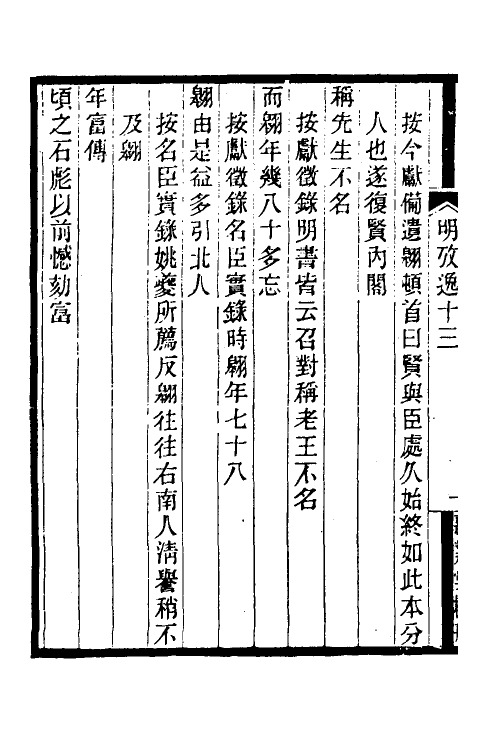 明攷逸十三
一
按今獻備遺翺頓首曰賢與臣處久始終如此本分
人也遂復賢內閣
稱先生不名
按獻徵錄明書皆云召對稱老王不名
而翺年幾八十多忘
按獻徵錄名臣實錄時翺年七十八
翺由是益多引北人
按名臣實錄姚夔所薦反翺往往右南人淸譽稍不
及翺
年富傳
頃之石彪以前憾劾富